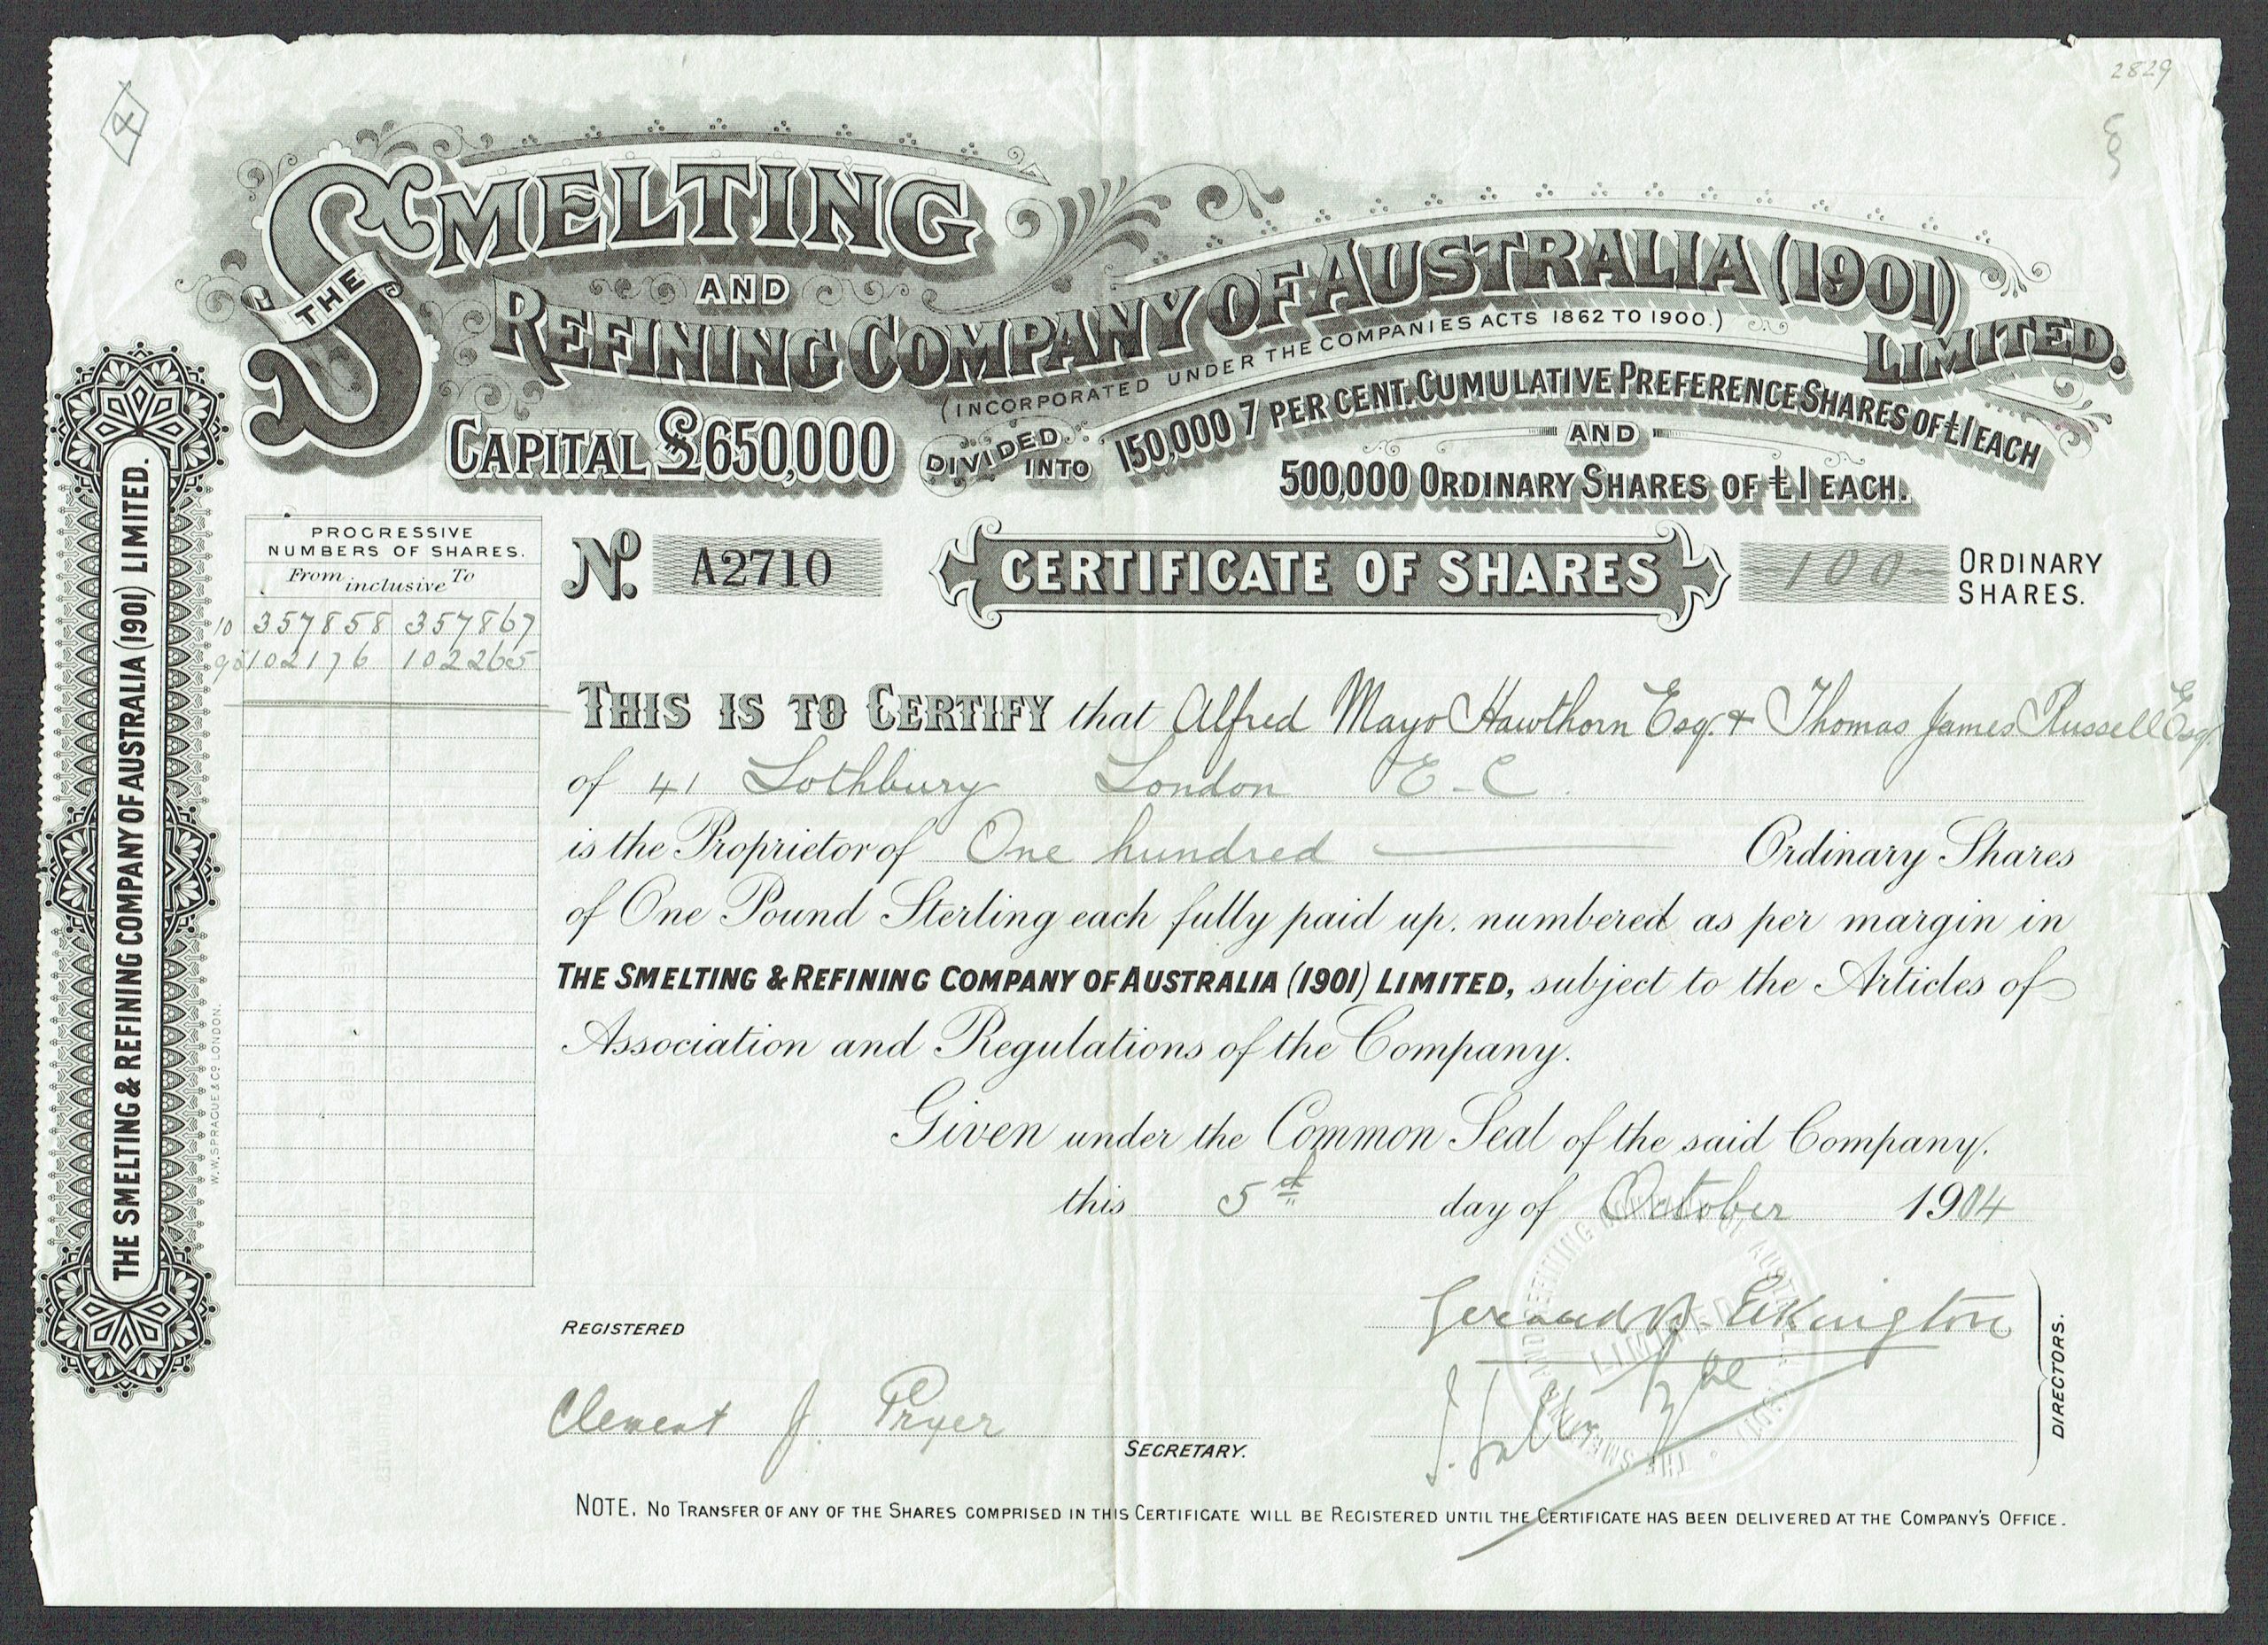 2829
THE SMELTING
AND
REFINING COMPANY OF AUSTRALIA (1901)
LIMITED.
(INCORPORATED UNDER THE COMPANIES ACTS 1862 TO 1900.)
CAPITAL £650,000
DIVIDED INTO
150,000 7 PER CENT. CUMULATIVE PREFERENCE SHARES OF £1 EACH
AND
500,000 ORDINARY SHARES OF £1 EACH.
THE SMELTING & REFINING COMPANY OF AUSTRALIA (1901) LIMITED.
W.W. SPRAGUE & CO LONDON.
PROGRESSIVE
NUMBERS OF SHARES.
From inclusive To
10 357858 357867
90 102176 102265
No. A2710
CERTIFICATE OF SHARES
100 ORDINARY
SHARES.
THIS IS TO CERTIFY that Alfred Mayo Hawthorn Esq. & Thomas James Russell Esq.
of 41 Lothbury London E-C.
is the Proprietor of One hundred Ordinary Shares
of One Pound Sterling each fully paid up, numbered as per margin in
THE SMELTING & REFINING COMPANY OF AUSTRALIA (1901) LIMITED, subject to the Articles of
Association and Regulations of the Company.
Given under the Common Seal of the said Company.
this 5th day of October 1904
REGISTERED
Gerard B. Elkington
Clement J. Pryer
SECRETARY.
DIRECTORS.
NOTE. NO TRANSFER OF ANY OF THE SHARES COMPRISED IN THIS CERTIFICATE WILL BE REGISTERED UNTIL THE CERTIFICATE HAS BEEN DELIVERED AT THE COMPANY'S OFFICE.